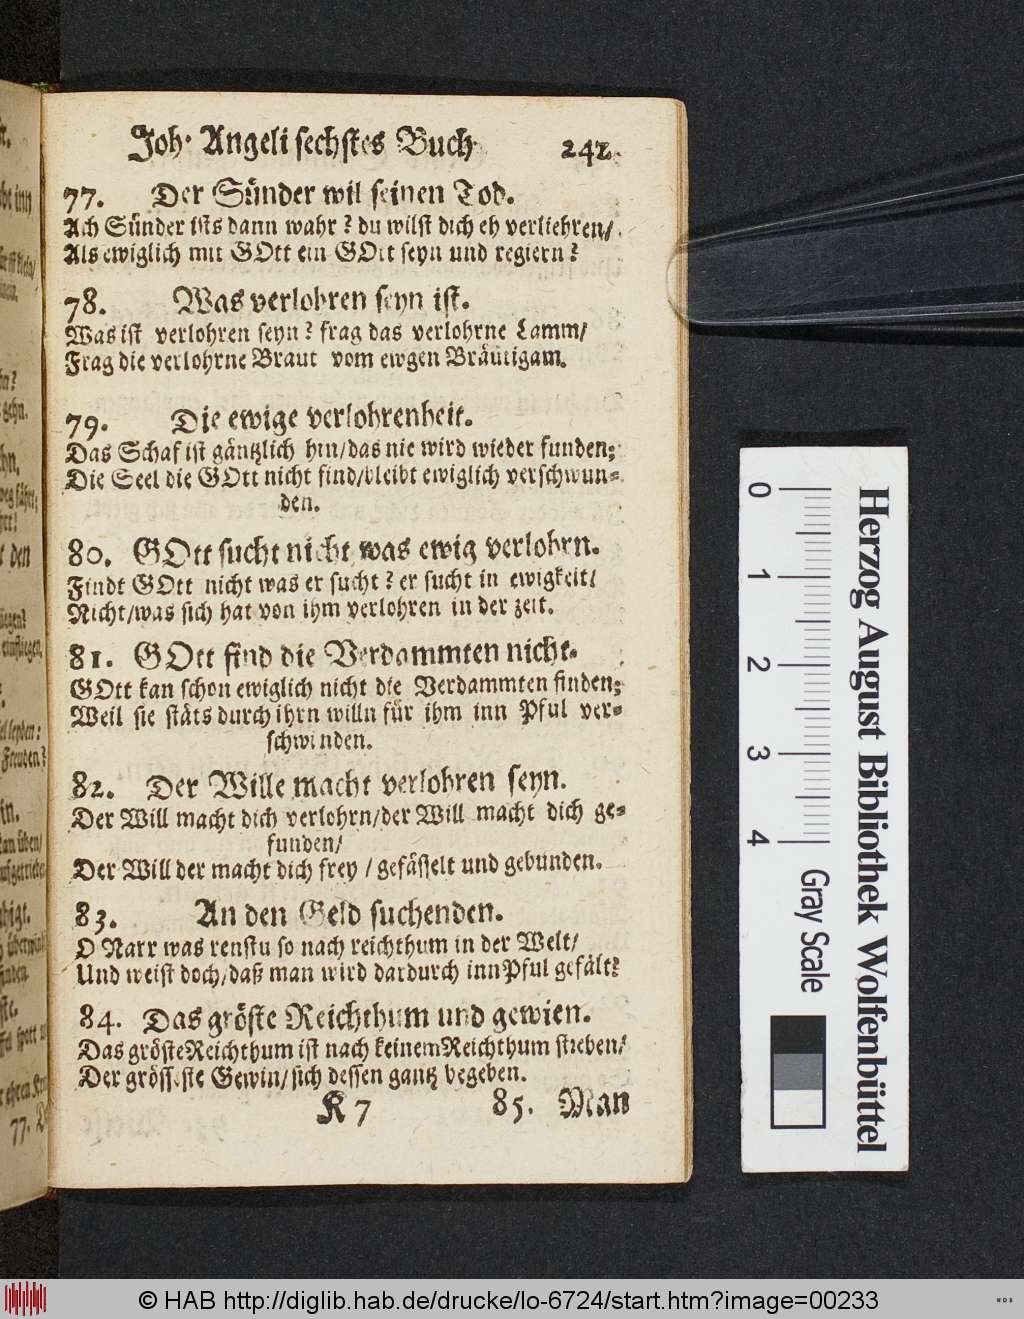 Joh. Angeli sechstes Buch 241.
77. Der Sünder wil seinen Tod.
Ach Sünder ists dann wahr? du wilst dich eh verliehren/
Als ewiglich mit GOtt ein GOtt seyn und regiern?
78. Was verlohren seyn ist.
Was ist verlohren seyn? frag das verlohrne Lamm/
Frag die verlohrne Braut vom ewgen Bräutigam.
79. Die ewige verlohrenheit.
Das Schaf ist gäntzlich hin/das nie wird wieder funden;
Die Seel die GOtt nicht find/bleibt ewiglich verschwun=
den.
80. GOtt sucht nicht was ewig verlohrn.
Findt GOtt nicht was er sucht? er sucht in ewigkeit/
Nicht/was sich hat von ihm verlohren in der zeit.
81. GOtt find die Verdammten nicht.
GOtt kan schon ewiglich nicht die Verdammten finden;
Weil sie stäts durch ihrn willn für ihm inn Pful ver=
schwinden.
82. Der Wille macht verlohren seyn.
Der Will macht dich verlohrn/der Will macht dich ge=
funden/
Der Will der macht dich frey / gefässelt und gebunden.
83. An den Geld suchenden.
O Narr was renstu so nach reichthum in der Welt/
Und weist doch/daß man wird dardurch inn Pful gefält?
84. Das gröste Reichthum und gewien.
Das gröste Reichthum ist nach keinem Reichthum streben/
Der grösseste Gewin/sich dessen gantz begeben.
K 7 85. Man
Herzog August Bibliothek Wolfenbüttel
0 1 2 3 4 Gray Scale
© HAB http://diglib.hab.de/drucke/lo-6724/start.htm?image=00233